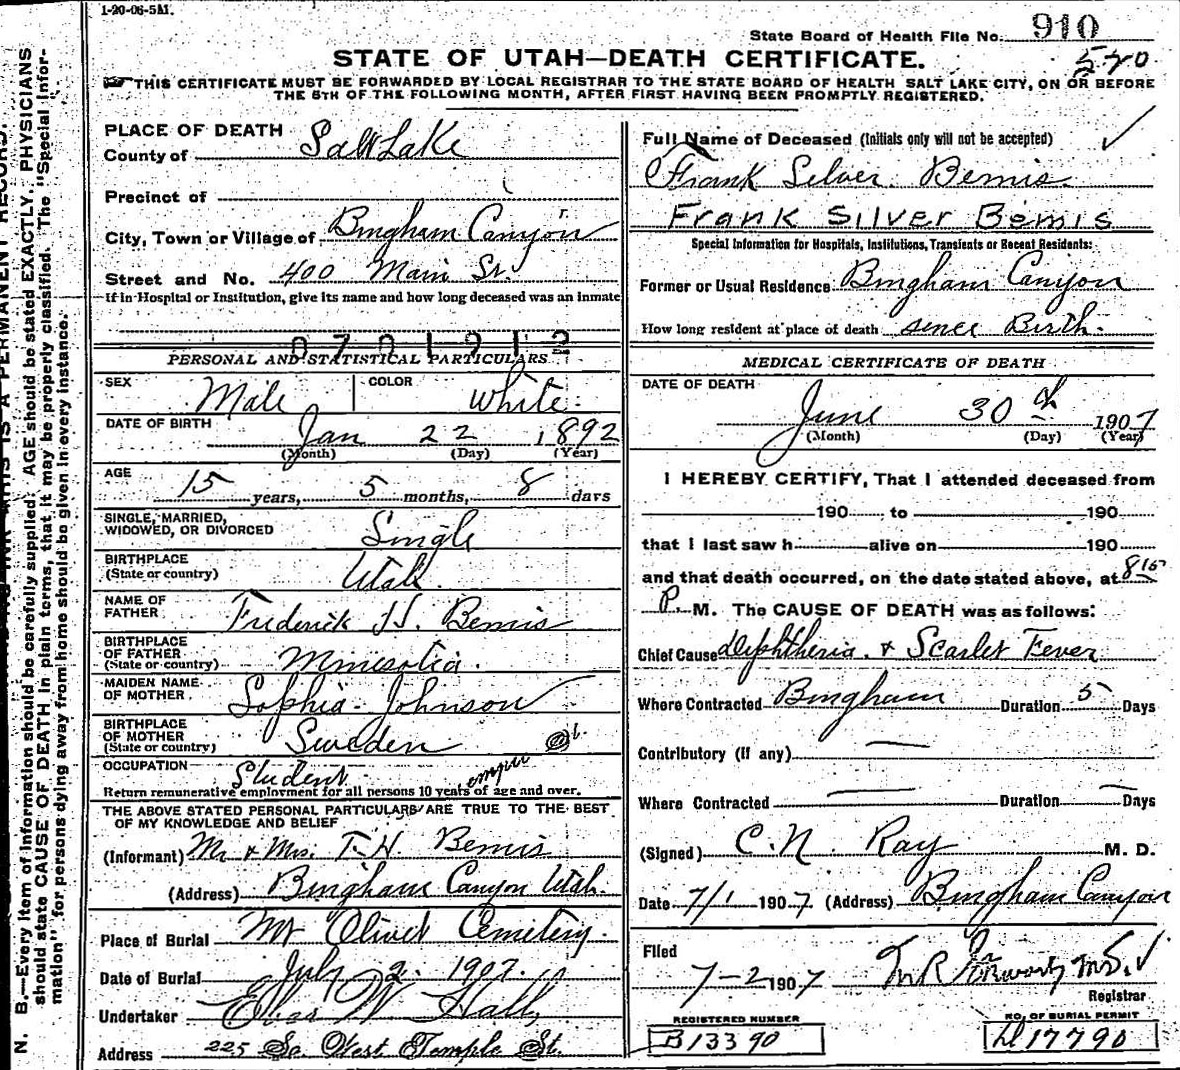 1-20-06-5M.
State Board of Health File No. 910
520
STATE OF UTAH—DEATH CERTIFICATE.
THIS CERTIFICATE MUST BE FORWARDED BY LOCAL REGISTRAR TO THE STATE BOARD OF HEALTH SALT LAKE CITY, ON OR BEFORE
THE 5TH OF THE FOLLOWING MONTH, AFTER FIRST HAVING BEEN PROMPTLY REGISTERED.
PLACE OF DEATH
County of Salt Lake
Precinct of
City, Town or Village of Bingham Canyon
Street and No. 400 Main St.
If in Hospital or Institution, give its name and how long deceased was an inmate
0701212
PERSONAL AND STATISTICAL PARTICULARS
SEX Male COLOR White
DATE OF BIRTH Jan 22, 1892
(Month) (Day) (Year)
AGE 15 years, 5 months, 8 days
SINGLE, MARRIED,
WIDOWED, OR DIVORCED Single
BIRTHPLACE
(State or country) Utah
NAME OF
FATHER Frederick H. Bemis
BIRTHPLACE
OF FATHER
(State or country) Minnesota.
MAIDEN NAME
OF MOTHER Sophia Johnson
BIRTHPLACE
OF MOTHER
(State or country) Sweden
OCCUPATION Student
Return remunerative employment for all persons 10 years of age and over.
THE ABOVE STATED PERSONAL PARTICULARS ARE TRUE TO THE BEST
OF MY KNOWLEDGE AND BELIEF
(Informant) Mr & Mrs. F. H. Bemis
(Address) Bingham Canyon Utah.
Place of Burial Mt Olivet Cemetery.
Date of Burial July 2. 1907.
Undertaker Eber W Hall,
Address 225 So. West Temple St.
Full Name of Deceased (Initials only will not be accepted)
Frank Silver Bemis
FRANK SILVER BEMIS
Special Information for Hospitals, Institutions, Transients or Recent Residents:
Former or Usual Residence Bingham Canyon
How long resident at place of death since Birth.
MEDICAL CERTIFICATE OF DEATH
DATE OF DEATH
June 30th 1907
(Month) (Day) (Year)
I HEREBY CERTIFY, That I attended deceased from
190 to 190
that I last saw h alive on 190
and that death occurred, on the date stated above, at 8 15
P. M. The CAUSE OF DEATH was as follows:
Chief Cause Diphtheria & Scarlet Fever
Where Contracted Bingham Duration 5 Days
Contributory (if any) —
Where Contracted — Duration — Days
(Signed) C. N. Ray M. D.
Date 7/1 1907. (Address) Bingham Canyon
Filed
7-2 1907
Registrar
REGISTERED NUMBER
B13390
NO. OF BURIAL PERMIT
17790
N. B.—Every item of information should be carefully supplied. AGE should be stated EXACTLY. PHYSICIANS
should state CAUSE OF DEATH in plain terms, that it may be properly classified. The "Special Infor-
mation" for persons dying away from home should be given in every instance.